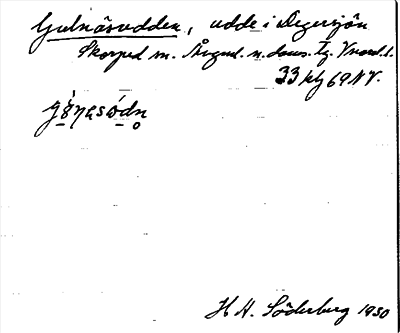 Gulnäsudden, udde i Degersjön
Skorped sn. Ångml. n. doms. Tg. Vnorrl. l.
33 Klg 69 NV.
gònesódn
H. H. Söderberg 1930